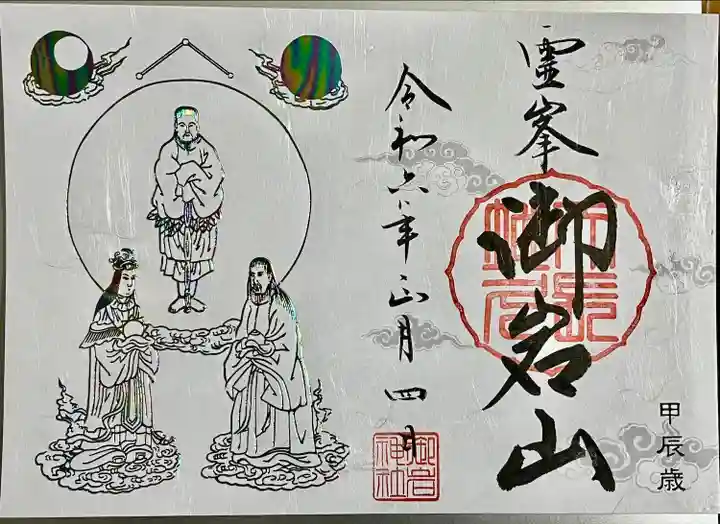 霊峯
御岩山
甲辰歳
令和六年正月四日
御岩
神社